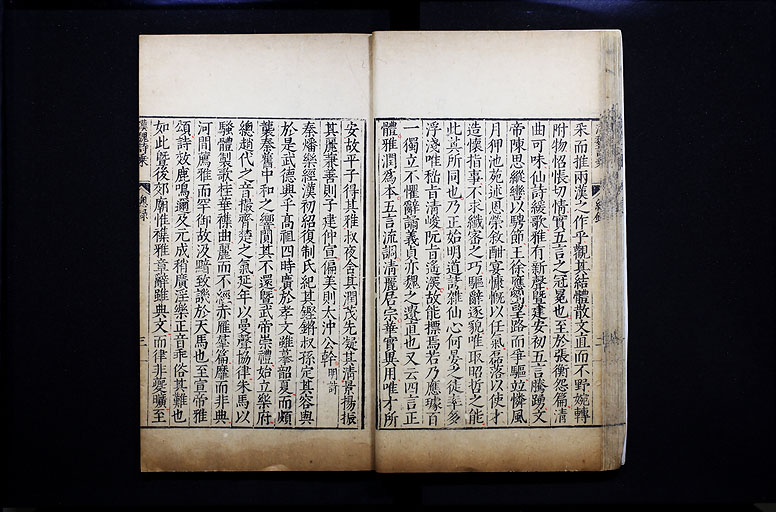 采而推兩漢之作乎觀其結體散文直而不野婉轉
附物怊悵切情實五言之冠冕也至於張衡怨篇清
曲可味仙詩緩歌雅有新聲暨建安初五言騰踴文
帝陳思縱轡以騁節王徐應劉望路而爭驅竝憐風
月狎池苑述恩榮敘酣宴慷慨以任氣磊落以使才
造懷指事不求纖密之巧驅辭逐貌唯取昭晳之能
此其所同也乃正始明道詩雜仙心何晏之徒率多
浮淺唯嵇旨清峻阮旨遙深故能摽焉若乃應璩百
一獨立不懼辭譎義貞亦魏之遺直也又云四言正
體雅潤爲本五言流調清麗居宗華實異用唯才所
安故平子得其雅叔夜含其潤茂先凝其清景揚振
其麗兼善則子建仲宣偏美則太沖公幹 明詩
秦燔樂經漢初紹復制氏紀其鏗鏘叔孫定其容與
於是武德興乎高祖四時廣於孝文雖摹韶夏而頗
襲秦舊中和之響闃其不還暨武帝崇禮始立樂府
總趙代之音撮齊楚之氣延年以曼聲協律朱馬以
騷體製歌桂華襍曲麗而不經赤雁羣篇靡而非典
河間薦雅而罕御故汲黯致譏於天馬也至宣帝雅
頌詩效鹿鳴邇及元成稍廣淫樂正音乖俗其難也
如此暨後郊廟惟襍雅章辭雖典文而律非夔曠至
漢魏詩乘 總錄 三